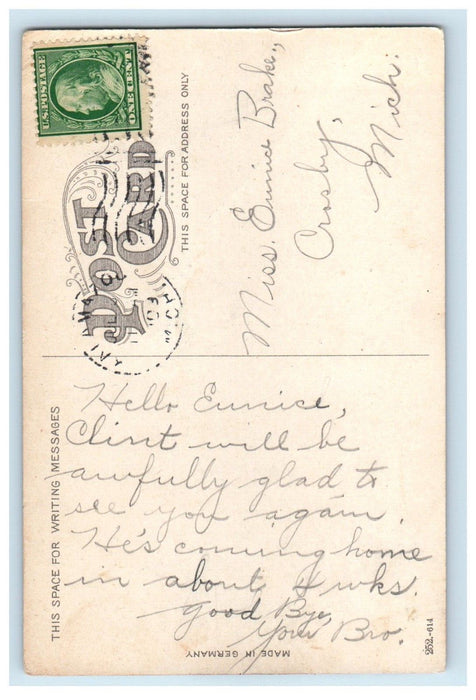 U.S. POSTAGE
ONE CENT
POST
CARD
THIS SPACE FOR ADDRESS ONLY
Miss. Eunice Brake,
Crosby,
Mich.
THIS SPACE FOR WRITING MESSAGES
Hello Eunice,
Clint will be
awfully glad to
see you again.
He's coming home
in about 4 wks.
Good Bye,
Your Bro.
MADE IN GERMANY
252.-614